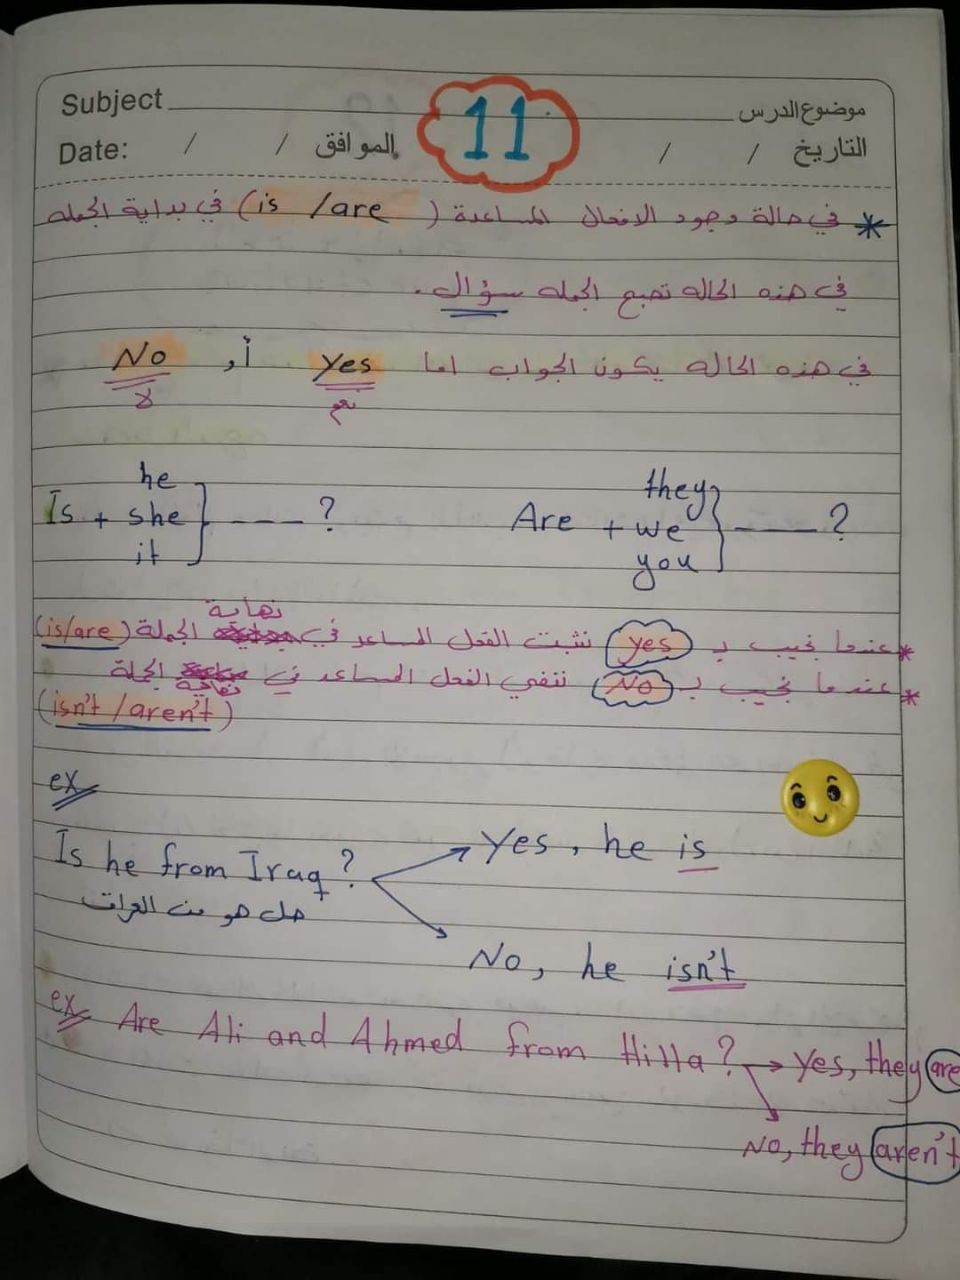 Subject موضوع الدرس
11
Date: / / الموافق / / التاريخ
* في حالة وجود الافعال المساعدة (is /are) في بداية الجمله
في هذه الحاله تصبح الجمله سؤال.
في هذه الحاله يكون الجواب اما Yes أو No
نعم لا
Is + he she it } ---- ?
Are + they we you } ---- ?
* عندما نجيب بـ yes نثبت الفعل المساعد في نهاية الجملة (is/are)
* عندما نجيب بـ No ننفي الفعل المساعد في نهاية الجملة
(isn't /aren't)
ex
Is he from Iraq? Yes, he is
هل هو من العراق
No, he isn't
ex Are Ali and Ahmed from Hilla? → Yes, they are
No, they aren't